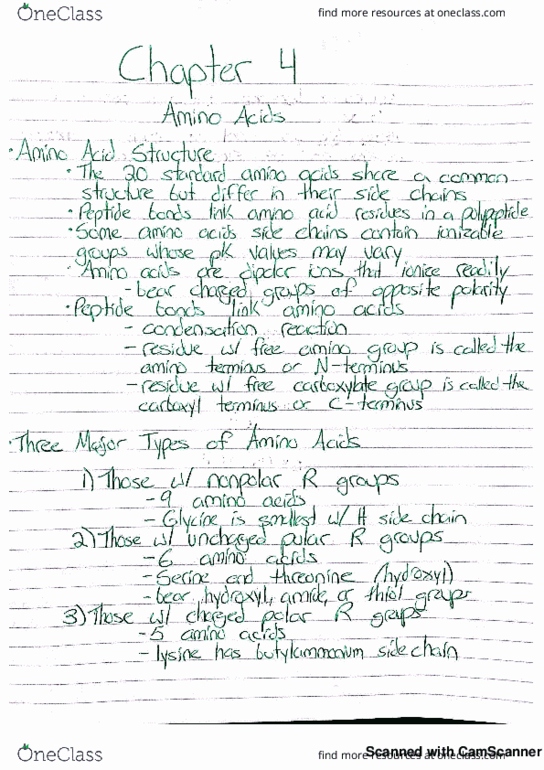 OneClass
find more resources at oneclass.com
Chapter 4
Amino Acids
· Amino Acid Structure
· The 20 standard amino acids share a common
structure but differ in their side chains
· Peptide bonds link amino acid residues in a polypeptide
· Some amino acids side chains contain ionizable
groups whose pk values may vary
· Amino acids are dipolar ions that ionize readily
- bear charged groups of opposite polarity
· Peptide bonds link amino acids
- condensation reaction
- residue w/ free amino group is called the
amino terminus or N-terminus
- residue w/ free carboxylate group is called the
carboxyl terminus or C-terminus
· Three Major Types of Amino Acids
1) Those w/ nonpolar R groups
- 9 amino acids
- Glycine is smallest w/ H side chain
2) Those w/ uncharged polar R groups
- 6 amino acids
- Serine and threonine (hydroxyl)
- bear hydroxyl, amide, or thiol groups
3) Those w/ charged polar R groups
- 5 amino acids
- lysine has butylammonium side chain
OneClass
find more resources at oneclass.com
Scanned with CamScanner